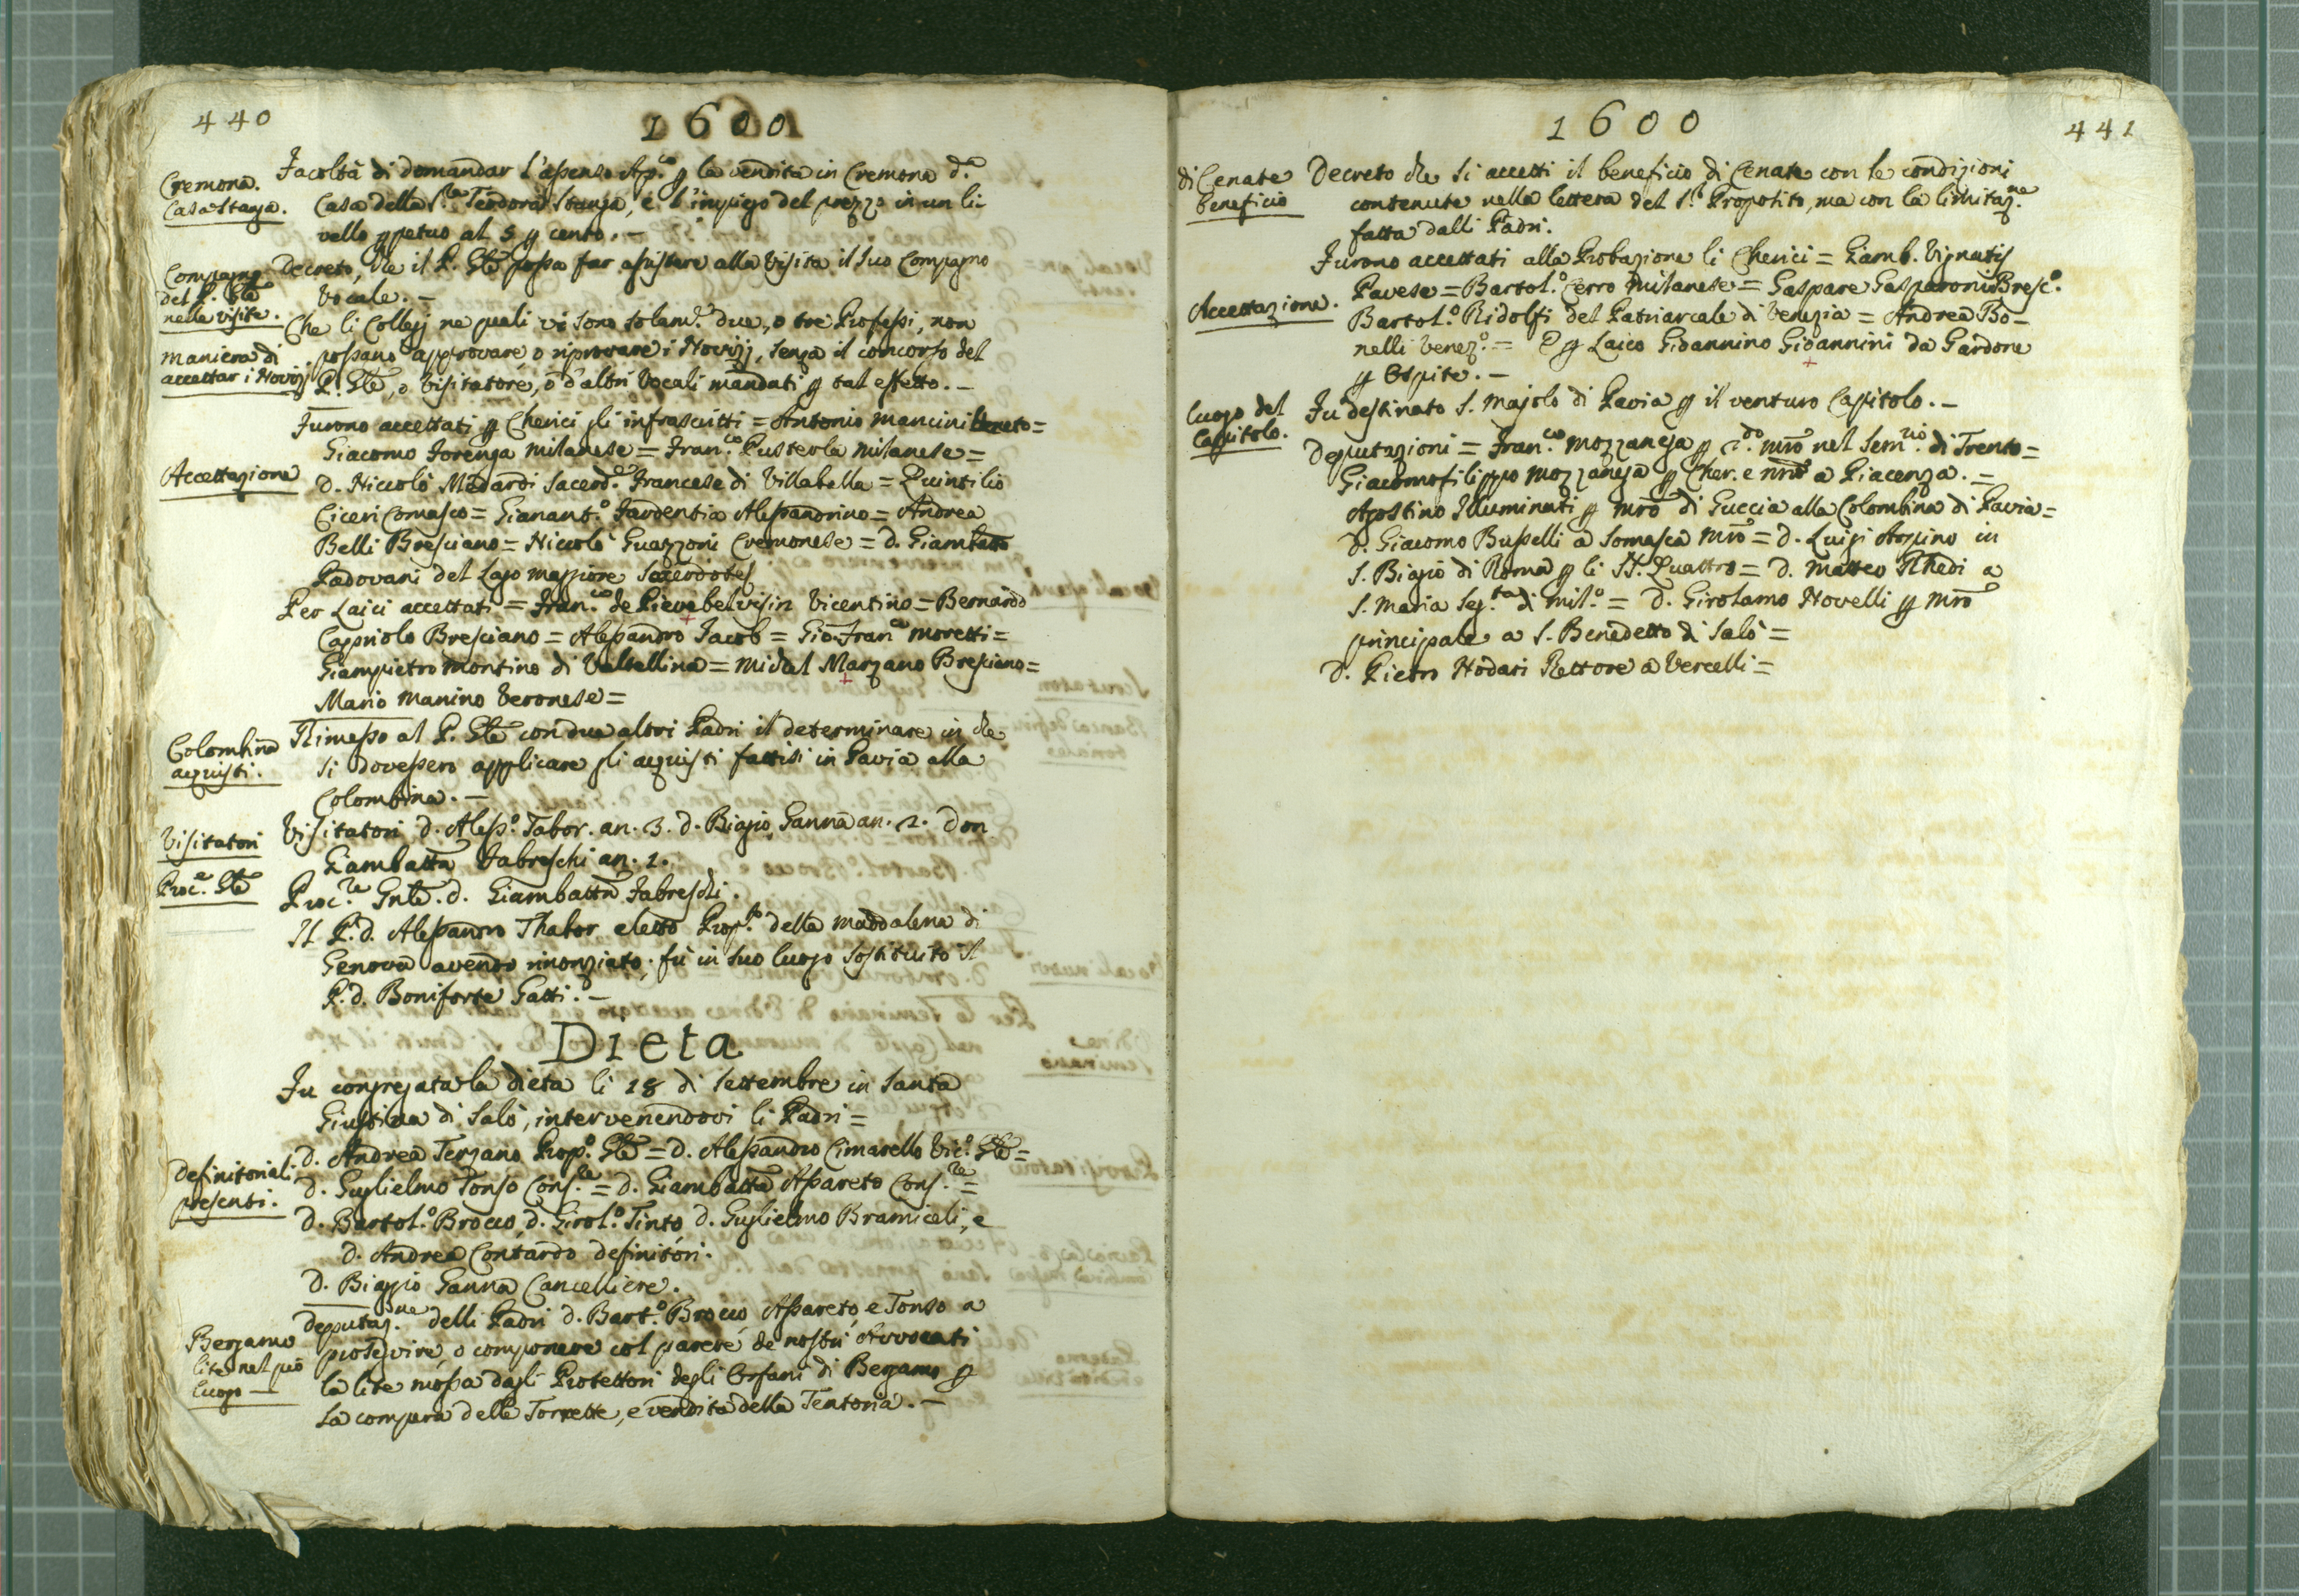 440
1600
Cremona.
Casa Staga.
Facoltà di domandar l'assenso Ap.co p la vendita in Cremona d.a
Casa della S.ra Teodora Stanga, e l'impiego del prezzo in un li-
vello ppetuo al 5 p cento. -
Compagno
del P. Gle
nelle visite.
Decreto, che il P. Gle possa far assistere alla visita il suo Compagno
Vocale. -
maniera di
accettar i Novizj
Che li Collegj ne quali vi sono solam.e due, o tre Professi, non
possano approvare o riprovare i Novizj, senza il concorso del
P. Gle, o visitatore, o d'altri Vocali mandati p tal effetto. -
Accettazione
Furono accettati p Cherici gli infrascritti = Antonio Mancini Veneto =
Giacomo Forenza Milanese = Fran.co Pusterla Milanese =
D. Niccolò Medardi Sacerd.e Francese di Villabella = Quintilio
Ciceri Comasco = Gianant.o Jardentia Alessandrino = Andrea
Belli Bresciano = Niccolò Guazzoni Cremonese = d. Giambatta
Padovani del Lago maggiore Sacerdotes
Per Laici accettati = Fran.co de Pievebelvisin Vicentino = Bernardo
Cappriolo Bresciano = Alessandro Jacob = Gio: Fran.co Moretti =
Giampietro Montino di Valtellina = Michel Marzano Bresciano =
Mario Manino Veronese =
Colombina
acquisti.
Rimesso al P. Gle con due altri Padri il determinare in che
si dovessero applicare gli acquisti fattisi in Pavia alla
Colombina. -
Visitatori
Visitatori d. Aless.o Tabor. an. 3. d. Biagio Ganna an. 2. Don
Giambatta Fabreschi an. 1.
Proc.e Gle
Proc.re Gnle. d. Giambatta Fabreschi.
Il P. d. Alessandro Thabor eletto Prop.to della Maddalena di
Genova avendo rinonziato, fù in suo luogo sostituito il
P. d. Boniforte Gatti. -
Dieta
Fu congregata la dieta li 18 di Settembre in Santa
Giustina di Salò, intervenendovi li Padri =
Definitoriali
presenti.
d. Andrea Terzano Prop.o Gle = d. Alessandro Cimarello Vic.o Gle =
d. Guglielmo Tonso Cons.re = d. Giambatta Assareto Cons.re =
d. Bartol.o Brocco, d. Girol.o Tinto, d. Guglielmo Bramiceli, e
d. Andrea Contardo definitori.
d. Biaggio Ganna Cancelliere.
Bergamo
lite nel pio
luogo -
Deputaz.ne delli Padri d. Bart.o Brocco, Assareto, e Tonso a
proseguire, o componere col parere de nostri Avvocati
la lite mossa dagli Protettori degli Orfani di Bergamo p
la compera delle Torrette, e vendita della Tentoria. -
1600
441
di Cenate
beneficio
Decreto che si accetti il beneficio di Cenate con le condizioni
contenute nella lettera del S.r Proposito, ma con la limitaz.ne
fatta dalli Padri.
Accettazione.
Furono accettati alla Probazione li Cherici = Giamb. Vignatis
Pavese = Bartol.o Cerro Milanese = Gaspare Gasparoni Bresc.o
Bartol.o Ridolfi del Patriarcale di Venezia = Andrea Bo-
nelli Venez.o = E p Laico Gioannino Gioannini da Gardone
p Ospite. -
luogo del
Capitolo.
Fu destinato S. Majolo di Pavia p il venturo Capitolo. -
Deputazioni = Fran.co Mozzanega p 2.do mro nel Sem.rio di Trento =
Giacomofilippo Mozzanega p Cher. e mro a Piacenza. -
Agostino Illuminati p mro di Guccia alla Colombina di Pavia =
d. Giacomo Busselli a Somasca mro = d. Luigi Arpino in
S. Biagio di Roma p li SS. Quattro = d. Matteo Rhedi a
S. Maria Seg.ta di Mil.o = d. Girolamo Novelli p mro
principale a S. Benedetto di Salò =
d. Pietro Nodari Rettore a Vercelli =